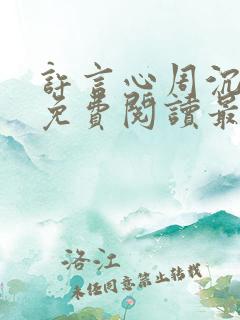 許言心周沉
免費閱讀最
洛江
未經同意禁止轉載